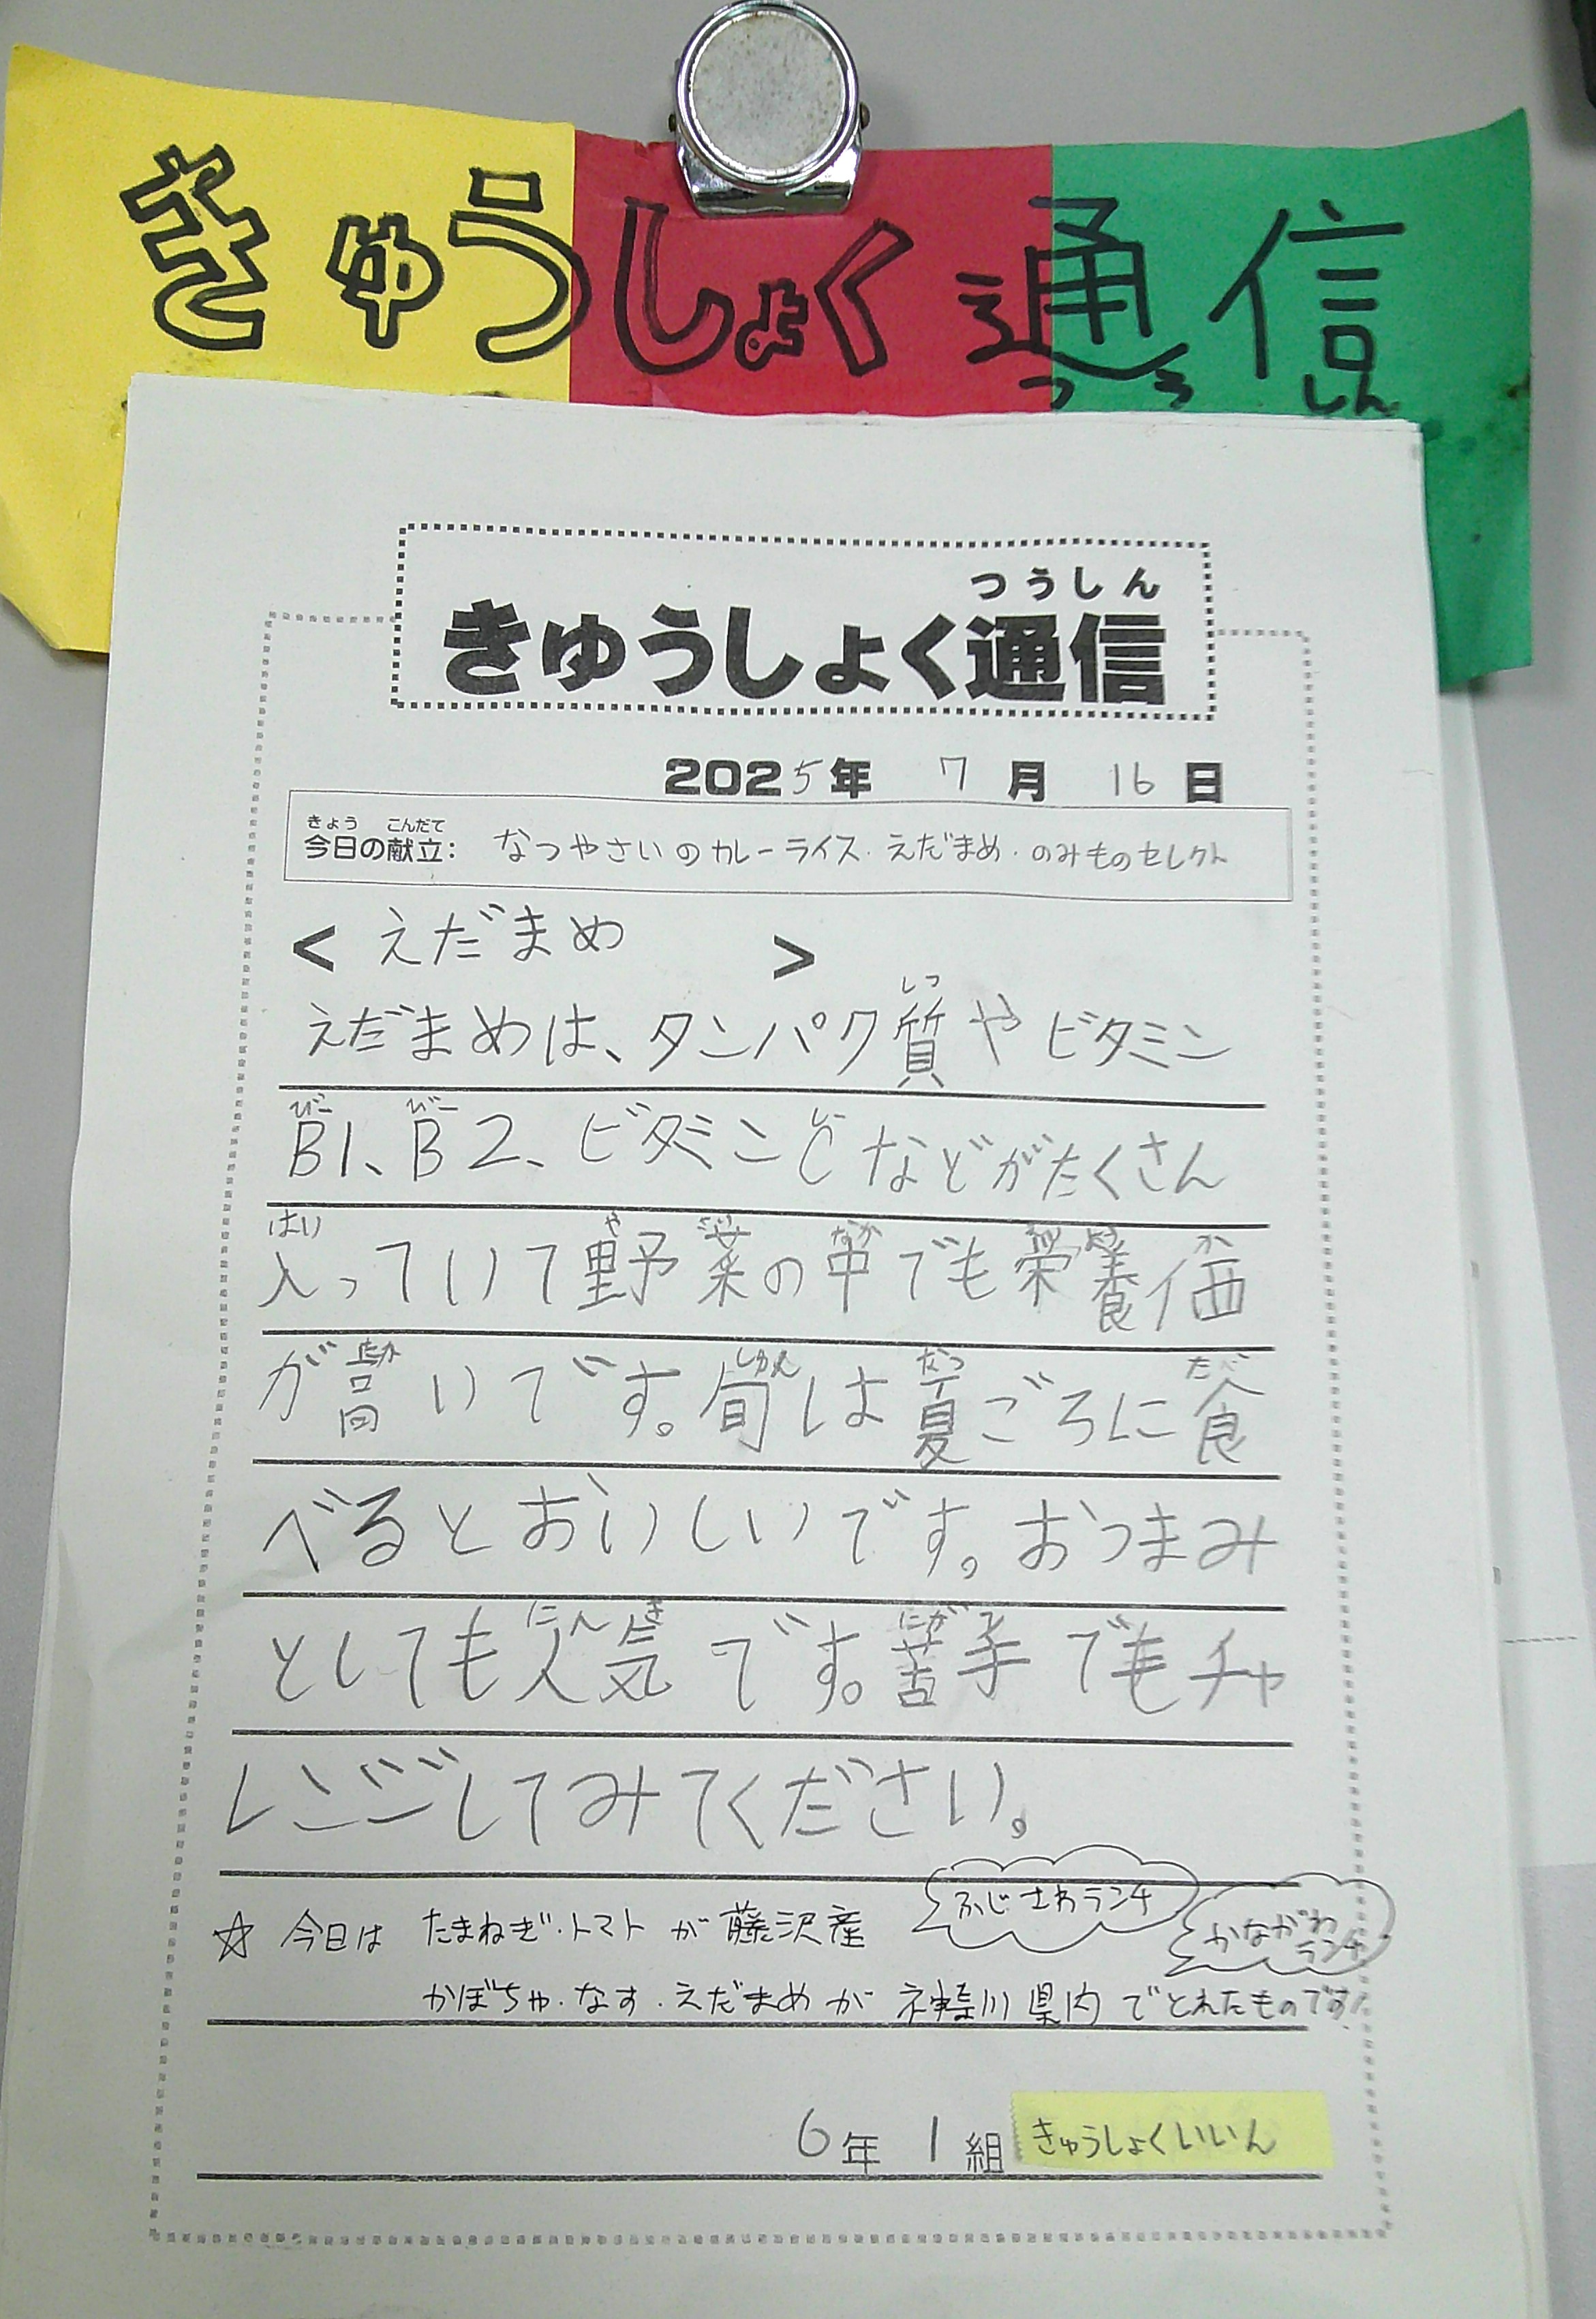 きゅうしょく通信
つうしん
つうしん
きゅうしょく通信
2025年 7月 16日
きょう こんだて
今日の献立: なつやさいのカレーライス・えだまめ・のみものセレクト
< えだまめ >
しつ
えだまめは、タンパク質やビタミン
びー びー しー
B1、B2、ビタミンCなどがたくさん
はい や さい なか えい よう か
入っていて野菜の中でも栄養価
たか しゅん なつ た
が高いです。旬は夏ごろに食
べるとおいしいです。おつまみ
にん き にが て
としても人気です。苦手でもチャ
レンジしてみてください。
☆ 今日は たまねぎ・トマトが藤沢産 ふじさわランチ
かながわランチ
かぼちゃ・なす・えだまめが 神奈川県内でとれたものです!
6年 1組 きゅうしょくいいん